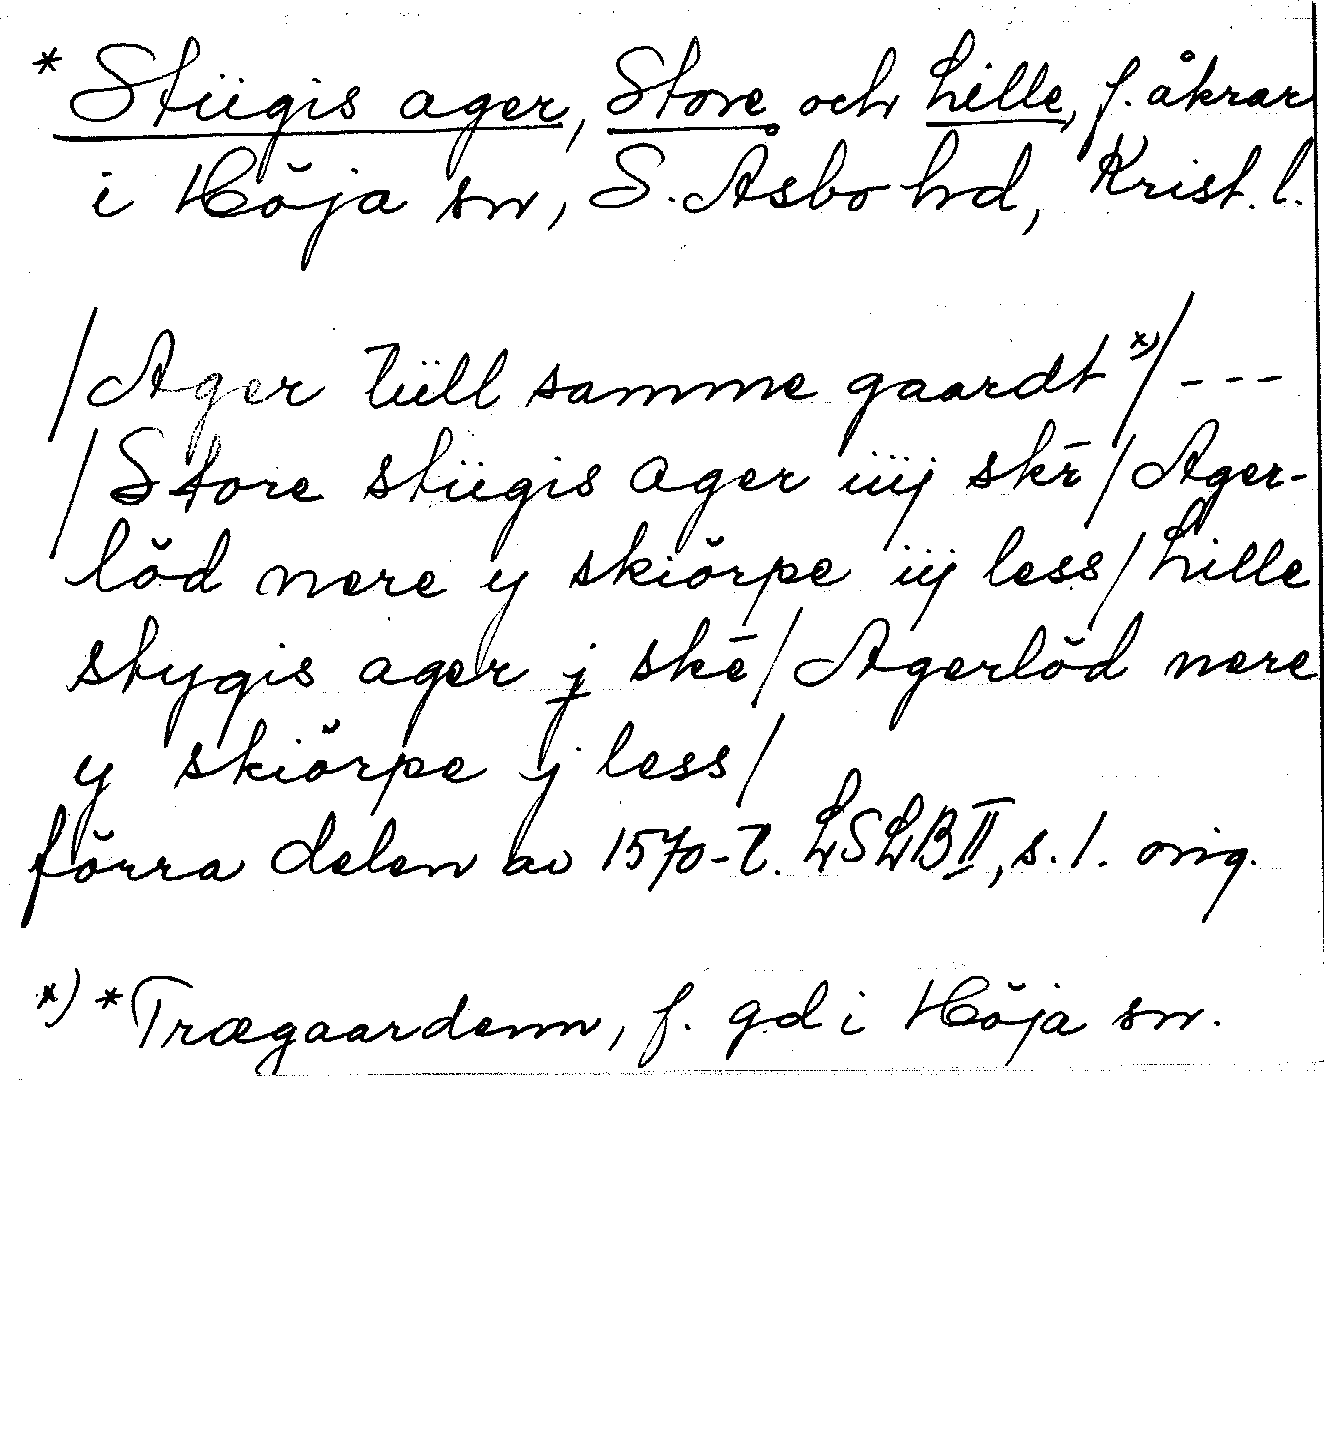 * Stiigis ager, Store och Lille, f. åkrar
i Höja sn, S. Åsbo hd, Krist. l.
/Ager tiill samme gaardt x)/ - - -
/Store stiigis ager iiij skē/Ager-
löd nere y skiörpe iij less/Lille
stygis ager j skē/Agerlöd nere
y skiörpe j less/
förra delen av 1570-t. LSLB II, s. 1. orig.
x) *Trægaardenn, f. gd i Höja sn.